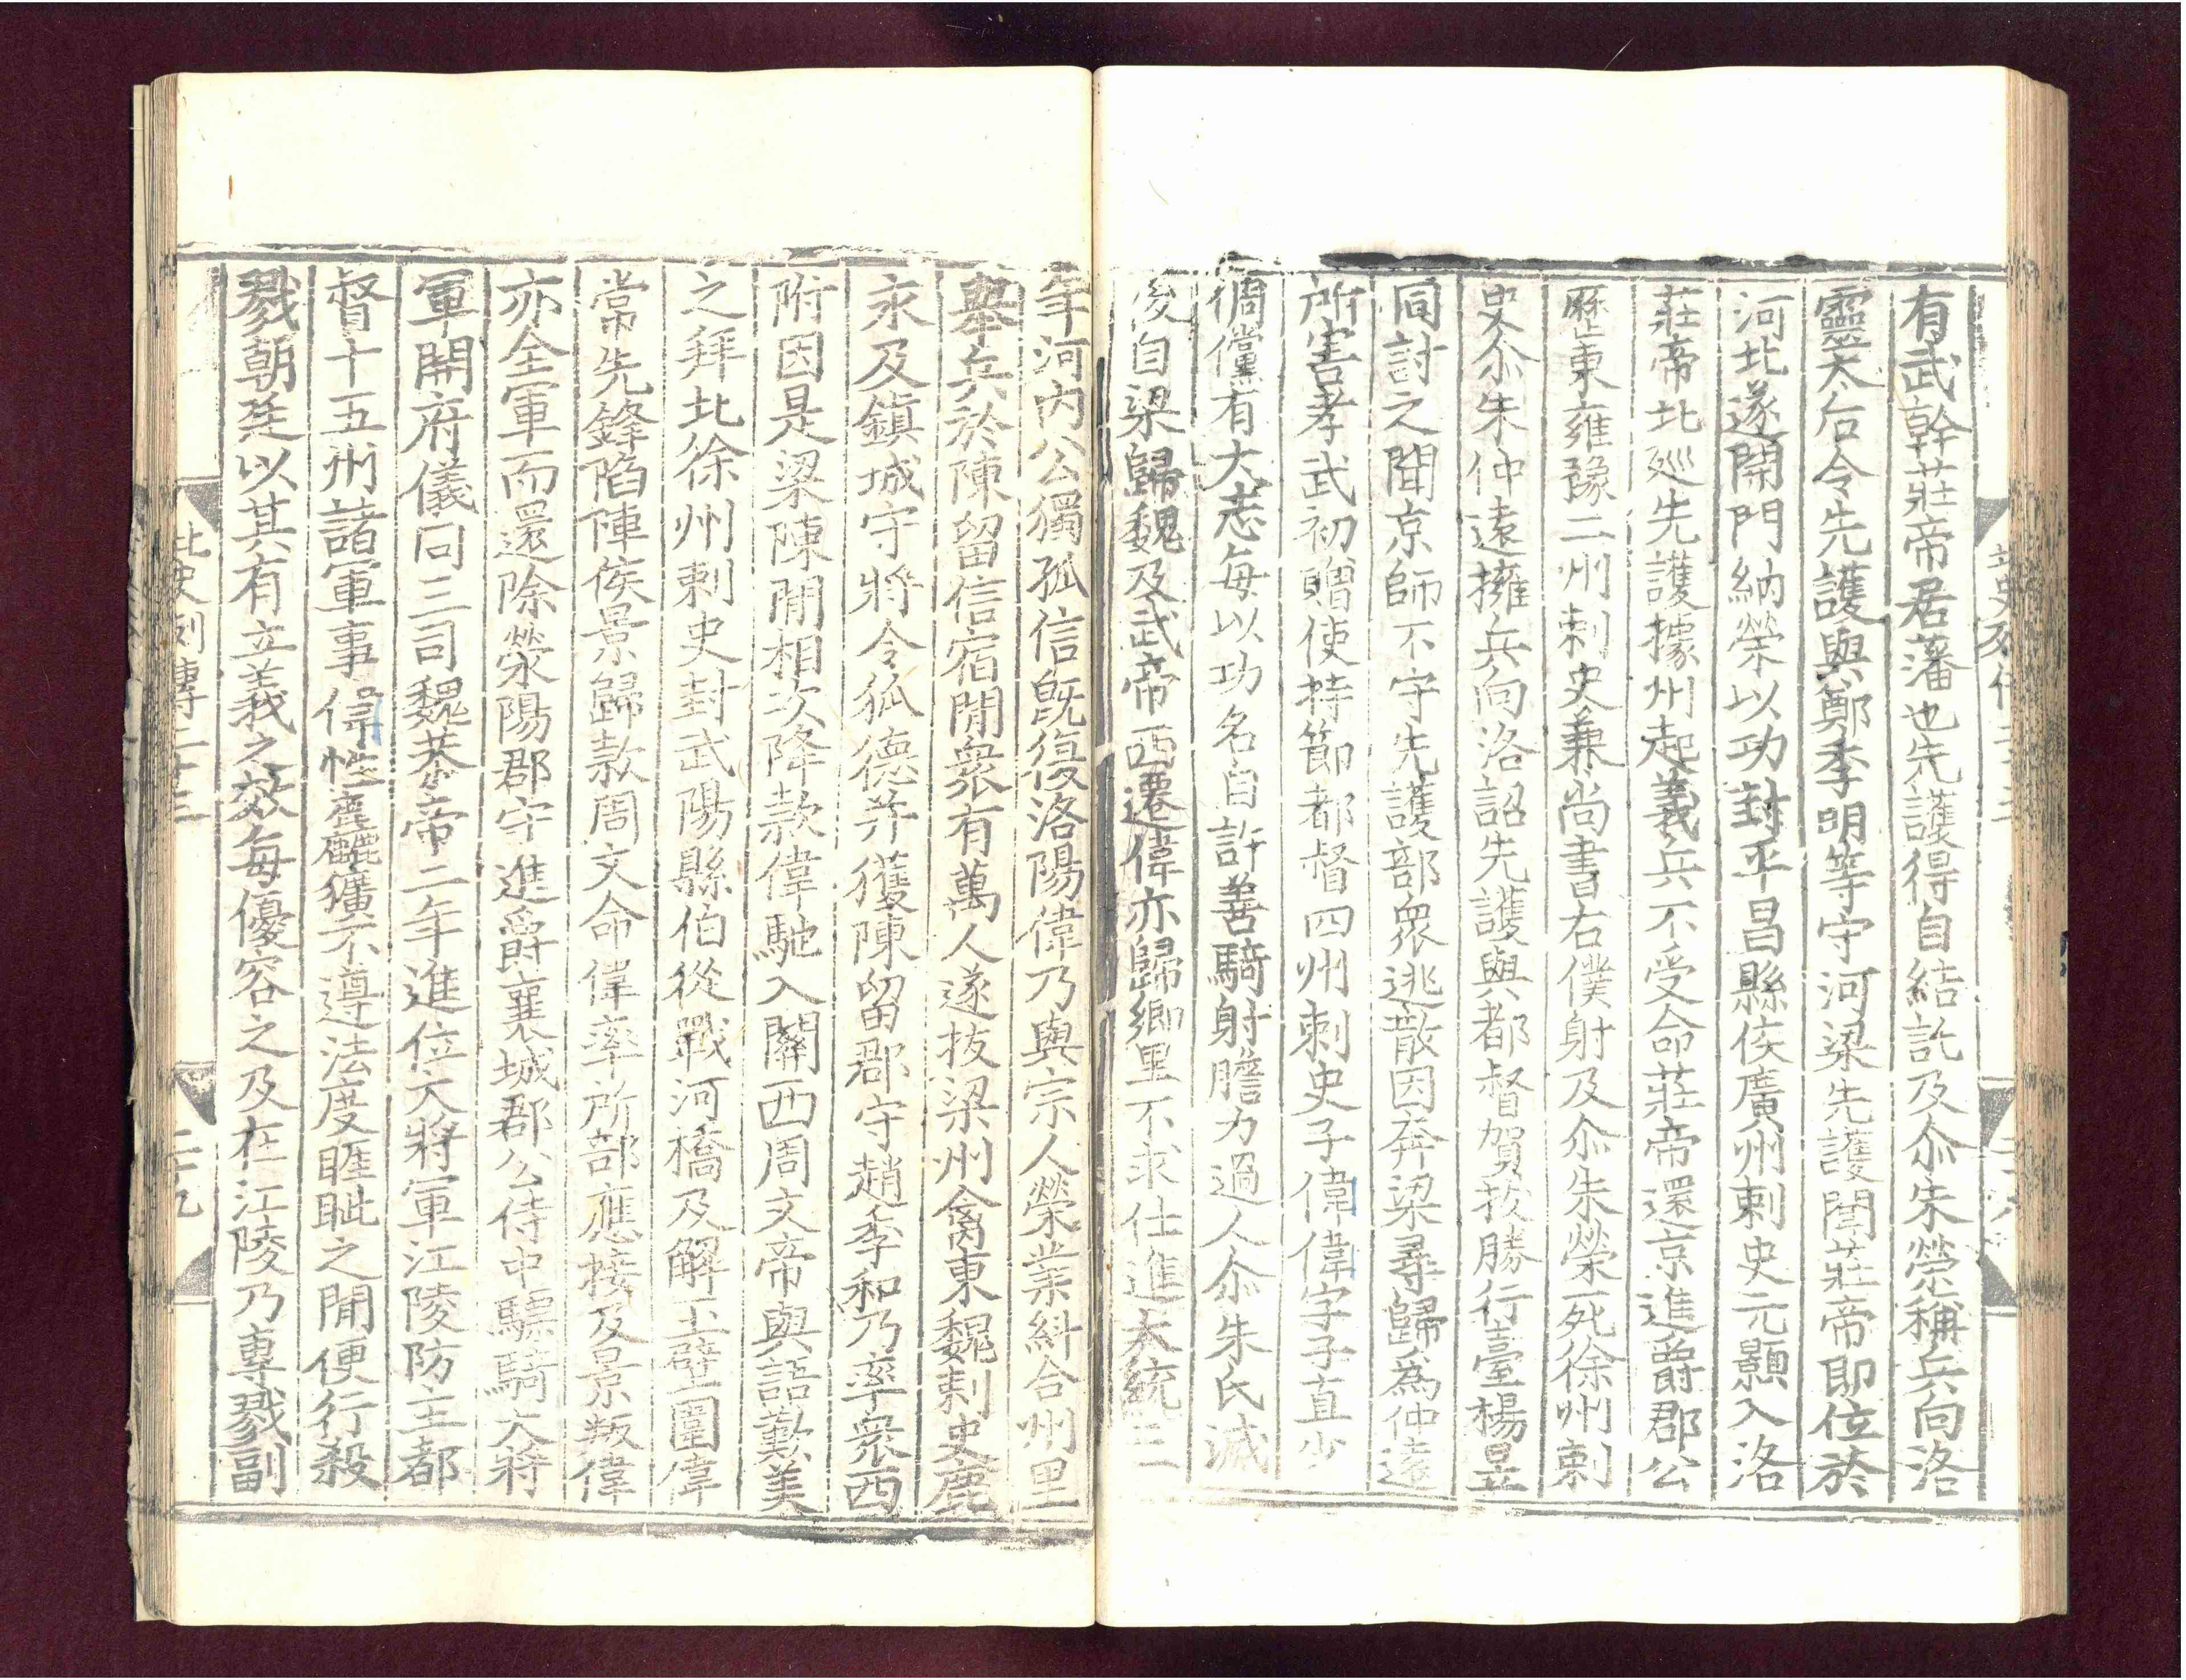 有武幹莊帝居藩也先護得自結託及尒朱榮稱兵向洛
靈太后令先護與鄭季明等守河梁先護聞莊帝即位於
河北遂開門納榮以功封平昌縣侯廣州刺史元顥入洛
莊帝北巡先護據州起義兵不受命莊帝還京進爵郡公
歷東雍豫二州刺史兼尚書右僕射及尒朱榮死徐州刺
史尒朱仲遠擁兵向洛詔先護與都督賀拔勝行臺楊昱
同討之聞京師不守先護部衆逃散因奔梁尋歸爲仲遠
所害孝武初贈使持節都督四州刺史子偉偉字子直少
倜儻有大志每以功名自許善騎射膽力過人尒朱氏滅
後自梁歸魏及武帝西遷偉亦歸鄉里不求仕進大統三
年河內公獨孤信旣復洛陽偉乃與宗人榮業糾合州里
舉兵於陳留信宿閒衆有萬人遂拔梁州禽東魏刺史鹿
永及鎮城守將令狐德并獲陳留郡守趙季和乃率衆西
附因是梁陳閒相次降款偉馳入關西周文帝與語歎美
之拜北徐州刺史封武陽縣伯從戰河橋及解玉壁圍偉
常先鋒陷陣侯景歸款周文命偉率所部應接及景叛偉
亦全軍而還除滎陽郡守進爵襄城郡公侍中驃騎大將
軍開府儀同三司魏恭帝二年進位大將軍江陵防主都
督十五州諸軍事偉性麤獷不遵法度睚眦之閒便行殺
戮朝廷以其有立義之效每優容之及在江陵乃專戮副
北史列傳二十三 二十九